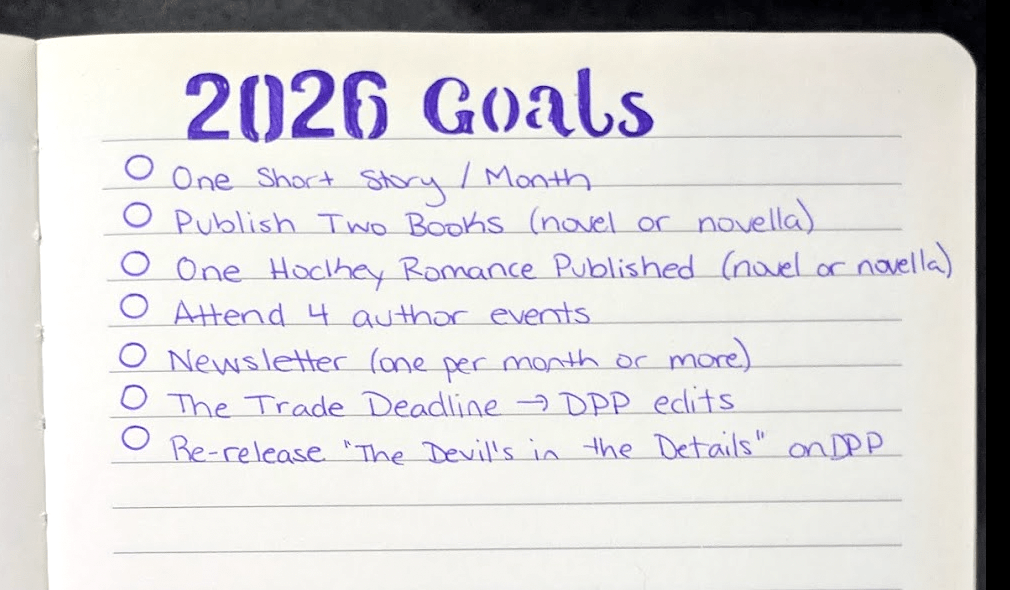 2026 Goals
One Short Story / Month
Publish Two Books (novel or novella)
One Hockey Romance Published (novel or novella)
Attend 4 author events
Newsletter (one per month or more)
The Trade Deadline → DPP edits
Re-release "The Devil's in the Details" on DPP